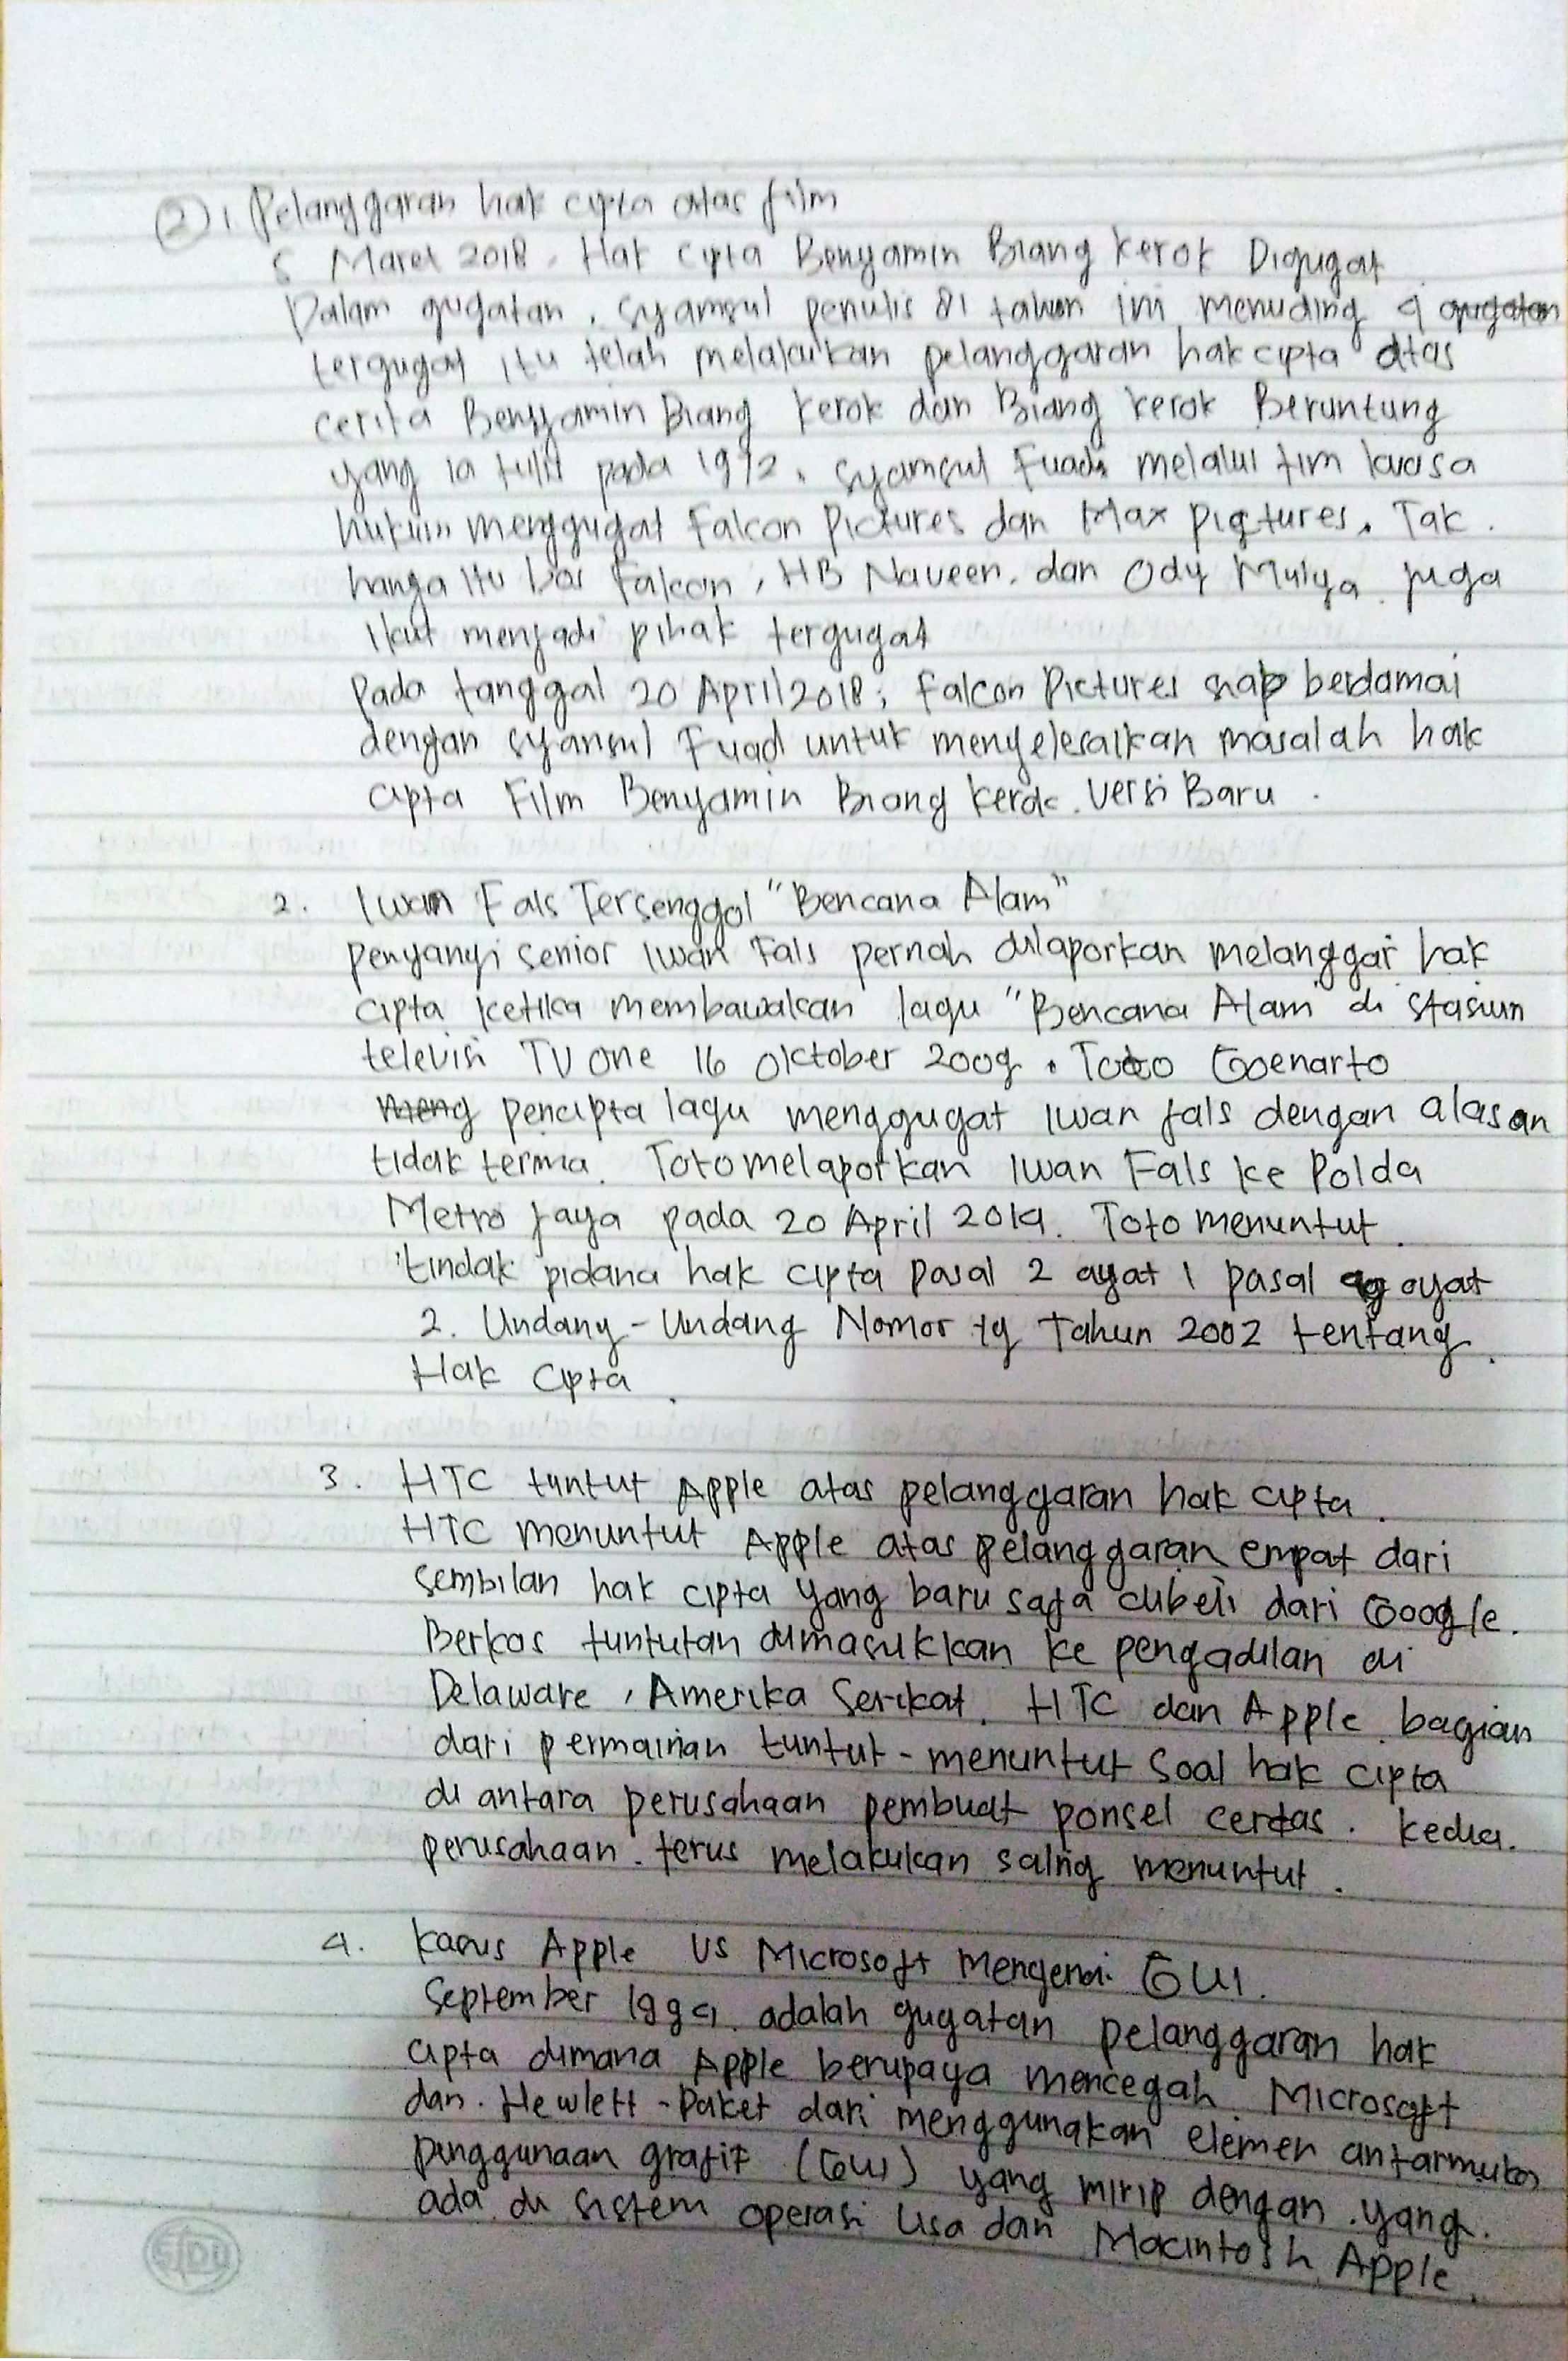 ② 1 Pelanggaran hak cipta atas film
5 Maret 2018, Hak cipta Benyamin Biang Kerok Digugat
Dalam gugatan, Syamsul penulis 81 tahun ini menuding 4 gugatan
tergugat itu telah melakukan pelanggaran hak cipta atas
cerita Benyamin Biang Kerok dan Biang Kerok Beruntung
yang ia tulis pada 1972. Syamsul Fuad melalui tim kuasa
hukum menggugat Falcon Pictures dan Max Pictures. Tak
hanya itu bos Falcon, HB Naveen, dan Ody Mulya juga
ikut menjadi pihak tergugat
Pada tanggal 20 April 2018, Falcon Pictures siap berdamai
dengan Syamsul Fuad untuk menyelesaikan masalah hak
cipta Film Benyamin Biang Kerok Versi Baru.
2. Iwan Fals Tersenggol "Bencana Alam"
penyanyi senior Iwan Fals pernah dilaporkan melanggar hak
cipta ketika membawakan lagu "Bencana Alam" di stasiun
televisi TV One 16 Oktober 2009. Toto Goenarto
meng pencipta lagu menggugat Iwan fals dengan alasan
tidak terima. Toto melaporkan Iwan Fals ke Polda
Metro Jaya pada 20 April 2014. Toto menuntut
tindak pidana hak cipta pasal 2 ayat 1 pasal 49 ayat
2. Undang-Undang Nomor 19 Tahun 2002 tentang
Hak Cipta.
3. HTC tuntut Apple atas pelanggaran hak cipta.
HTC menuntut Apple atas pelanggaran empat dari
sembilan hak cipta yang baru saja dibeli dari Google.
Berkas tuntutan dimasukkan ke pengadilan di
Delaware, Amerika Serikat. HTC dan Apple bagian
dari permainan tuntut-menuntut soal hak cipta
di antara perusahaan pembuat ponsel cerdas. kedua
perusahaan terus melakukan saling menuntut.
4. Kasus Apple VS Microsoft Mengenai GUI.
September adalah gugatan pelanggaran hak
cipta dimana Apple berupaya mencegah Microsoft
dan Hewlett-Paket dari menggunakan elemen antarmuka
penggunaan grafik (GUI) yang mirip dengan yang
ada di sistem operasi Lisa dan Macintosh Apple.
SIDU